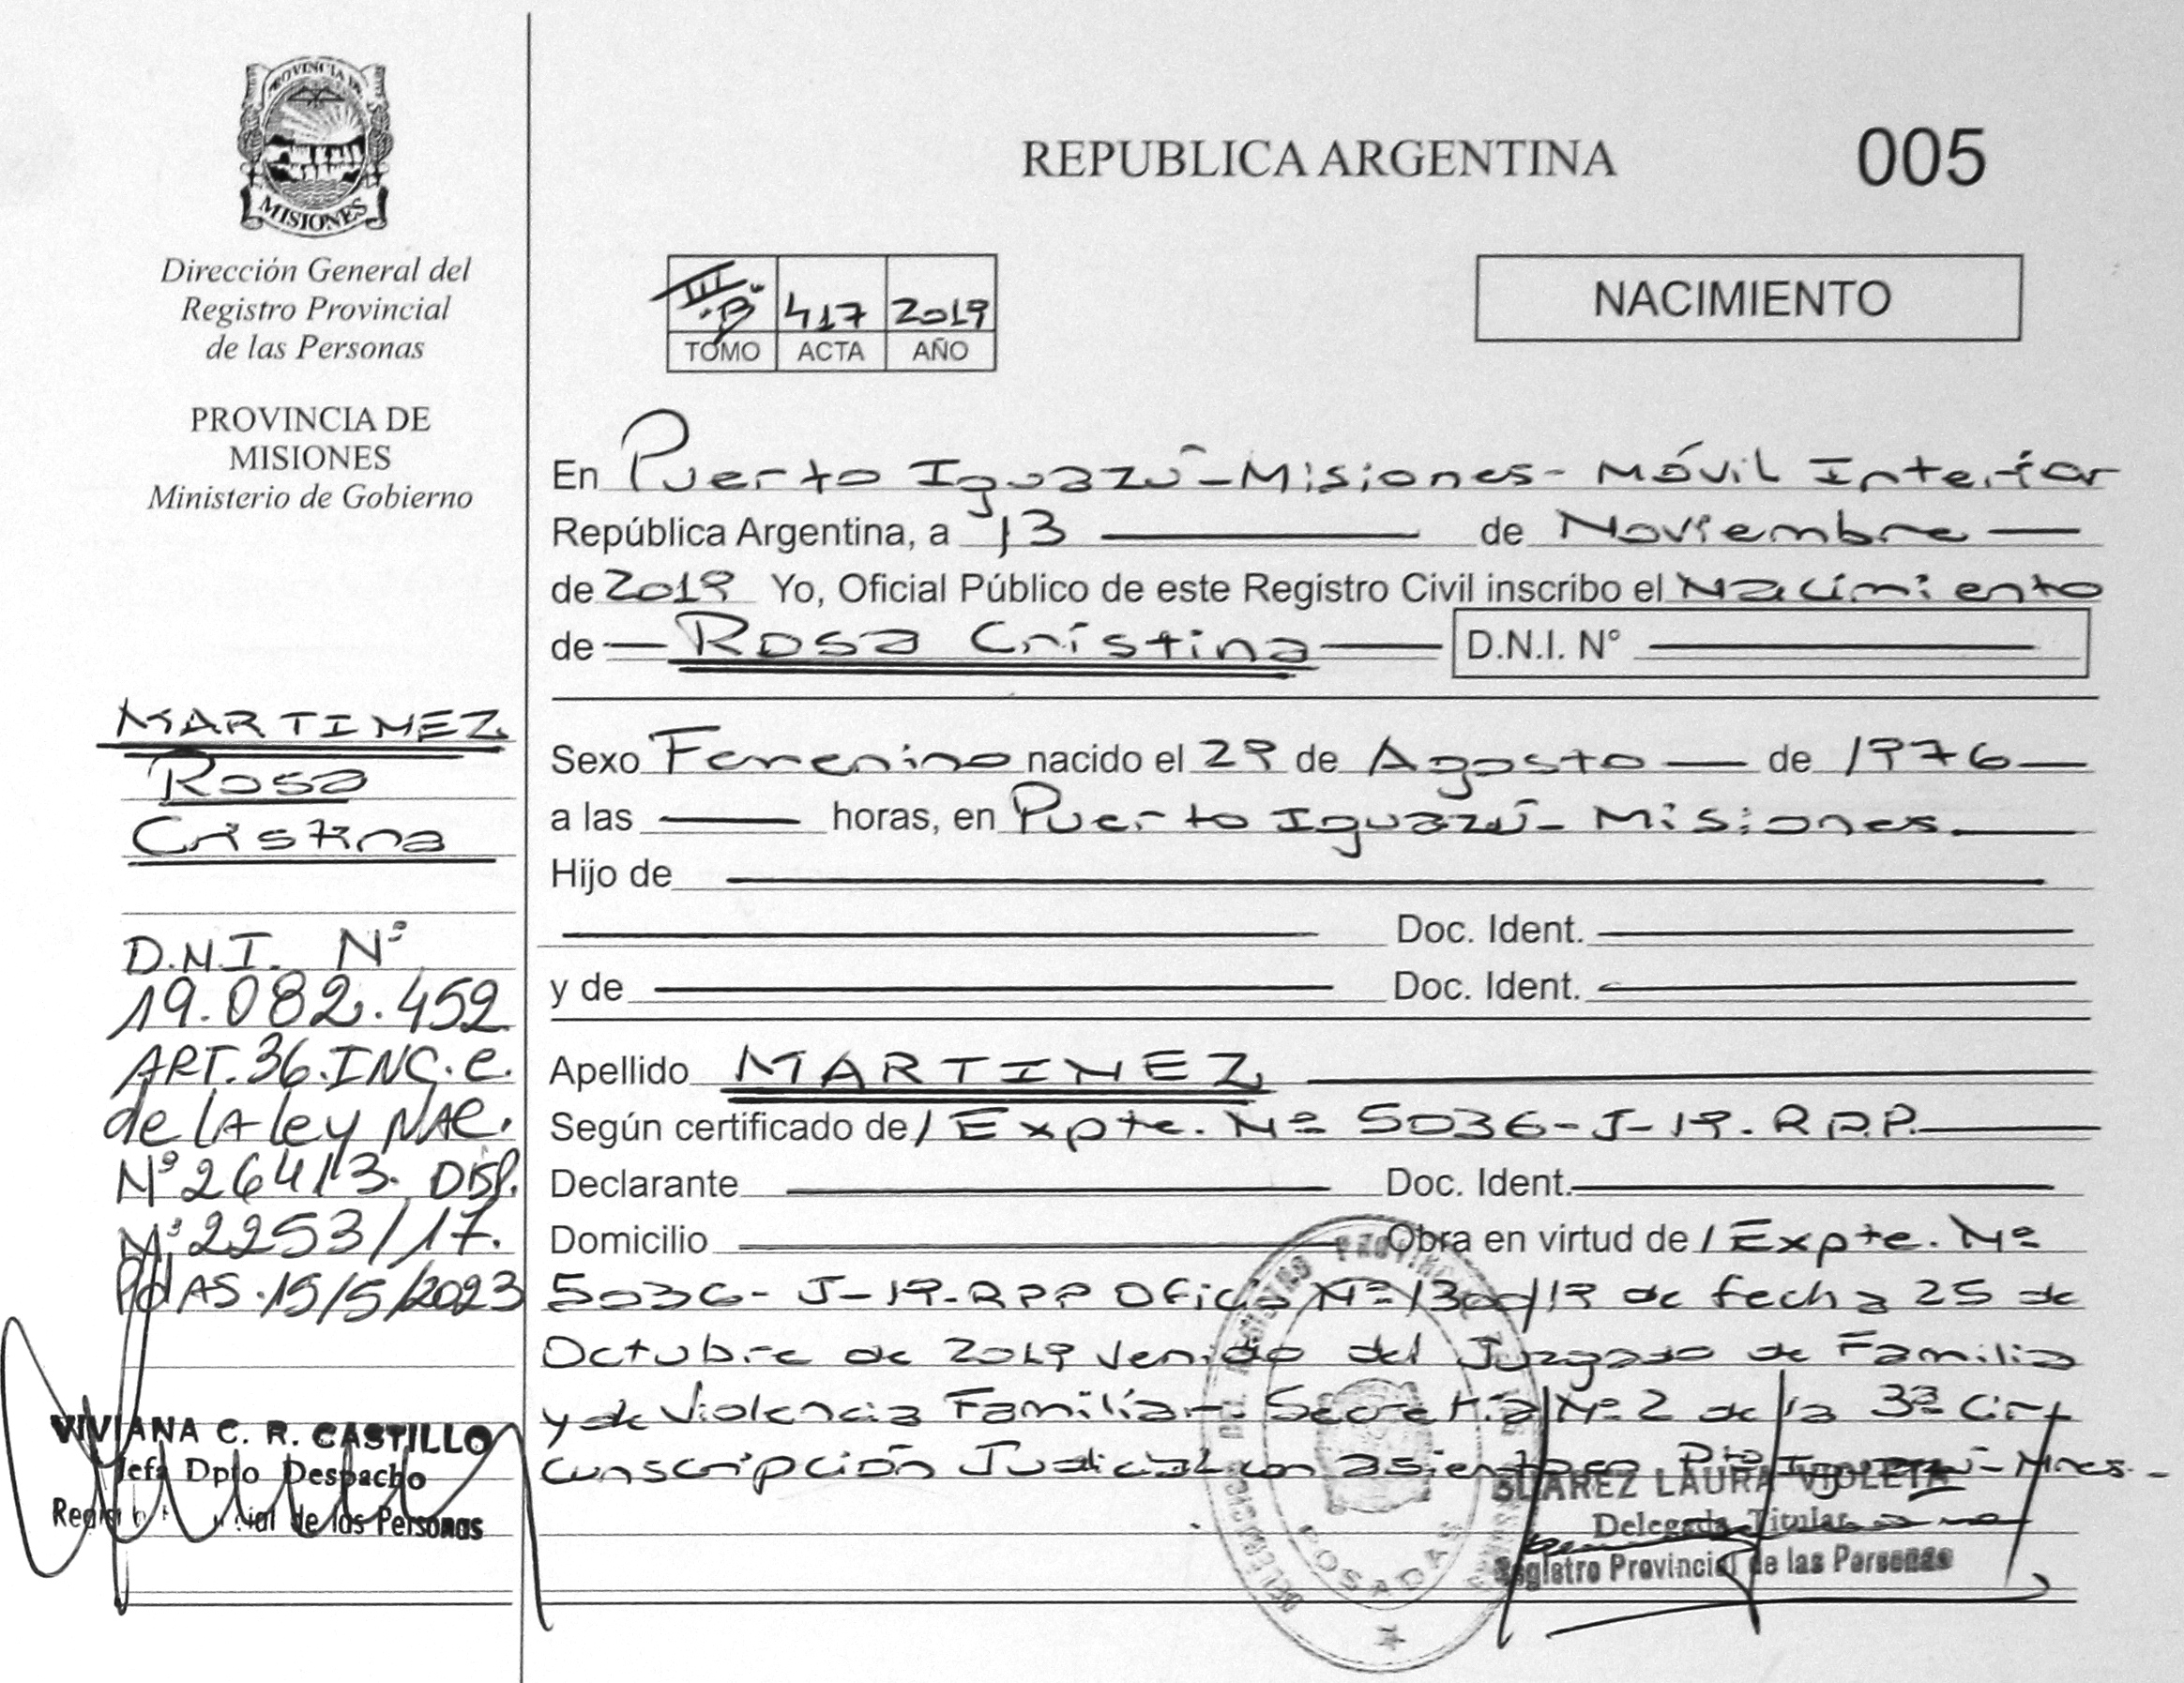 PROVINCIA DE
MISIONES
Dirección General del
Registro Provincial
de las Personas
PROVINCIA DE
MISIONES
Ministerio de Gobierno
MARTINEZ
Rosa
Cristina
D.N.I. Nº
19.082.459
ART.36.INC.c.
de LA ley NAC.
Nº 26413. DISP.
Nº 2253/17.
PdAS.15/5/2023
VIVIANA C. R. CASTILLO
Jefa Dpto Despacho
de las Personas
REPUBLICA ARGENTINA
005
III-Bº 417 2019
TOMO ACTA AÑO
NACIMIENTO
En Puerto Iguazú-Misiones- Móvil Interior
República Argentina, a 13 de Noviembre
de 2019 Yo, Oficial Público de este Registro Civil inscribo el Nacimiento
de Rosa Cristina D.N.I. N°
Sexo Femenino nacido el 29 de Agosto de 1976
a las horas, en Puerto Iguazú- Misiones.
Hijo de
Doc. Ident.
y de Doc. Ident.
Apellido MARTINEZ
Según certificado de/ Expte. Nº 5036-J-19.R.P.P.
Declarante Doc. Ident.
Domicilio Obra en virtud de / Expte. Nº
5036- J-19-RPP Oficio Nº 1300/19 de fecha 25 de
Octubre de 2019 venido del Juzgado de Familia
y de Violencia Familiar- Secretría Nº 2 de la 3ª Cir-
cunscripción Judicial con asiento en Pto Iguazú-Mnes.-
SUAREZ LAURA VIOLETA
Delegada Titular
Registro Provincial de las Personas
POSADAS